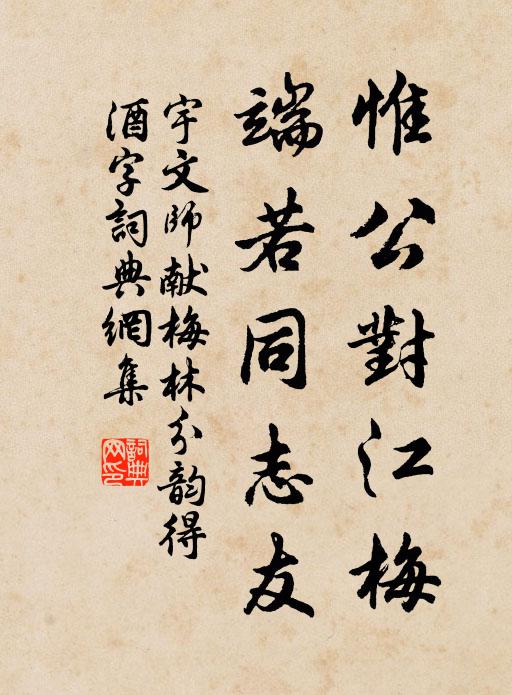 惟公對江梅
端若同志友
宇文師献梅林分韵得
酒字詞典網集
詞典网印